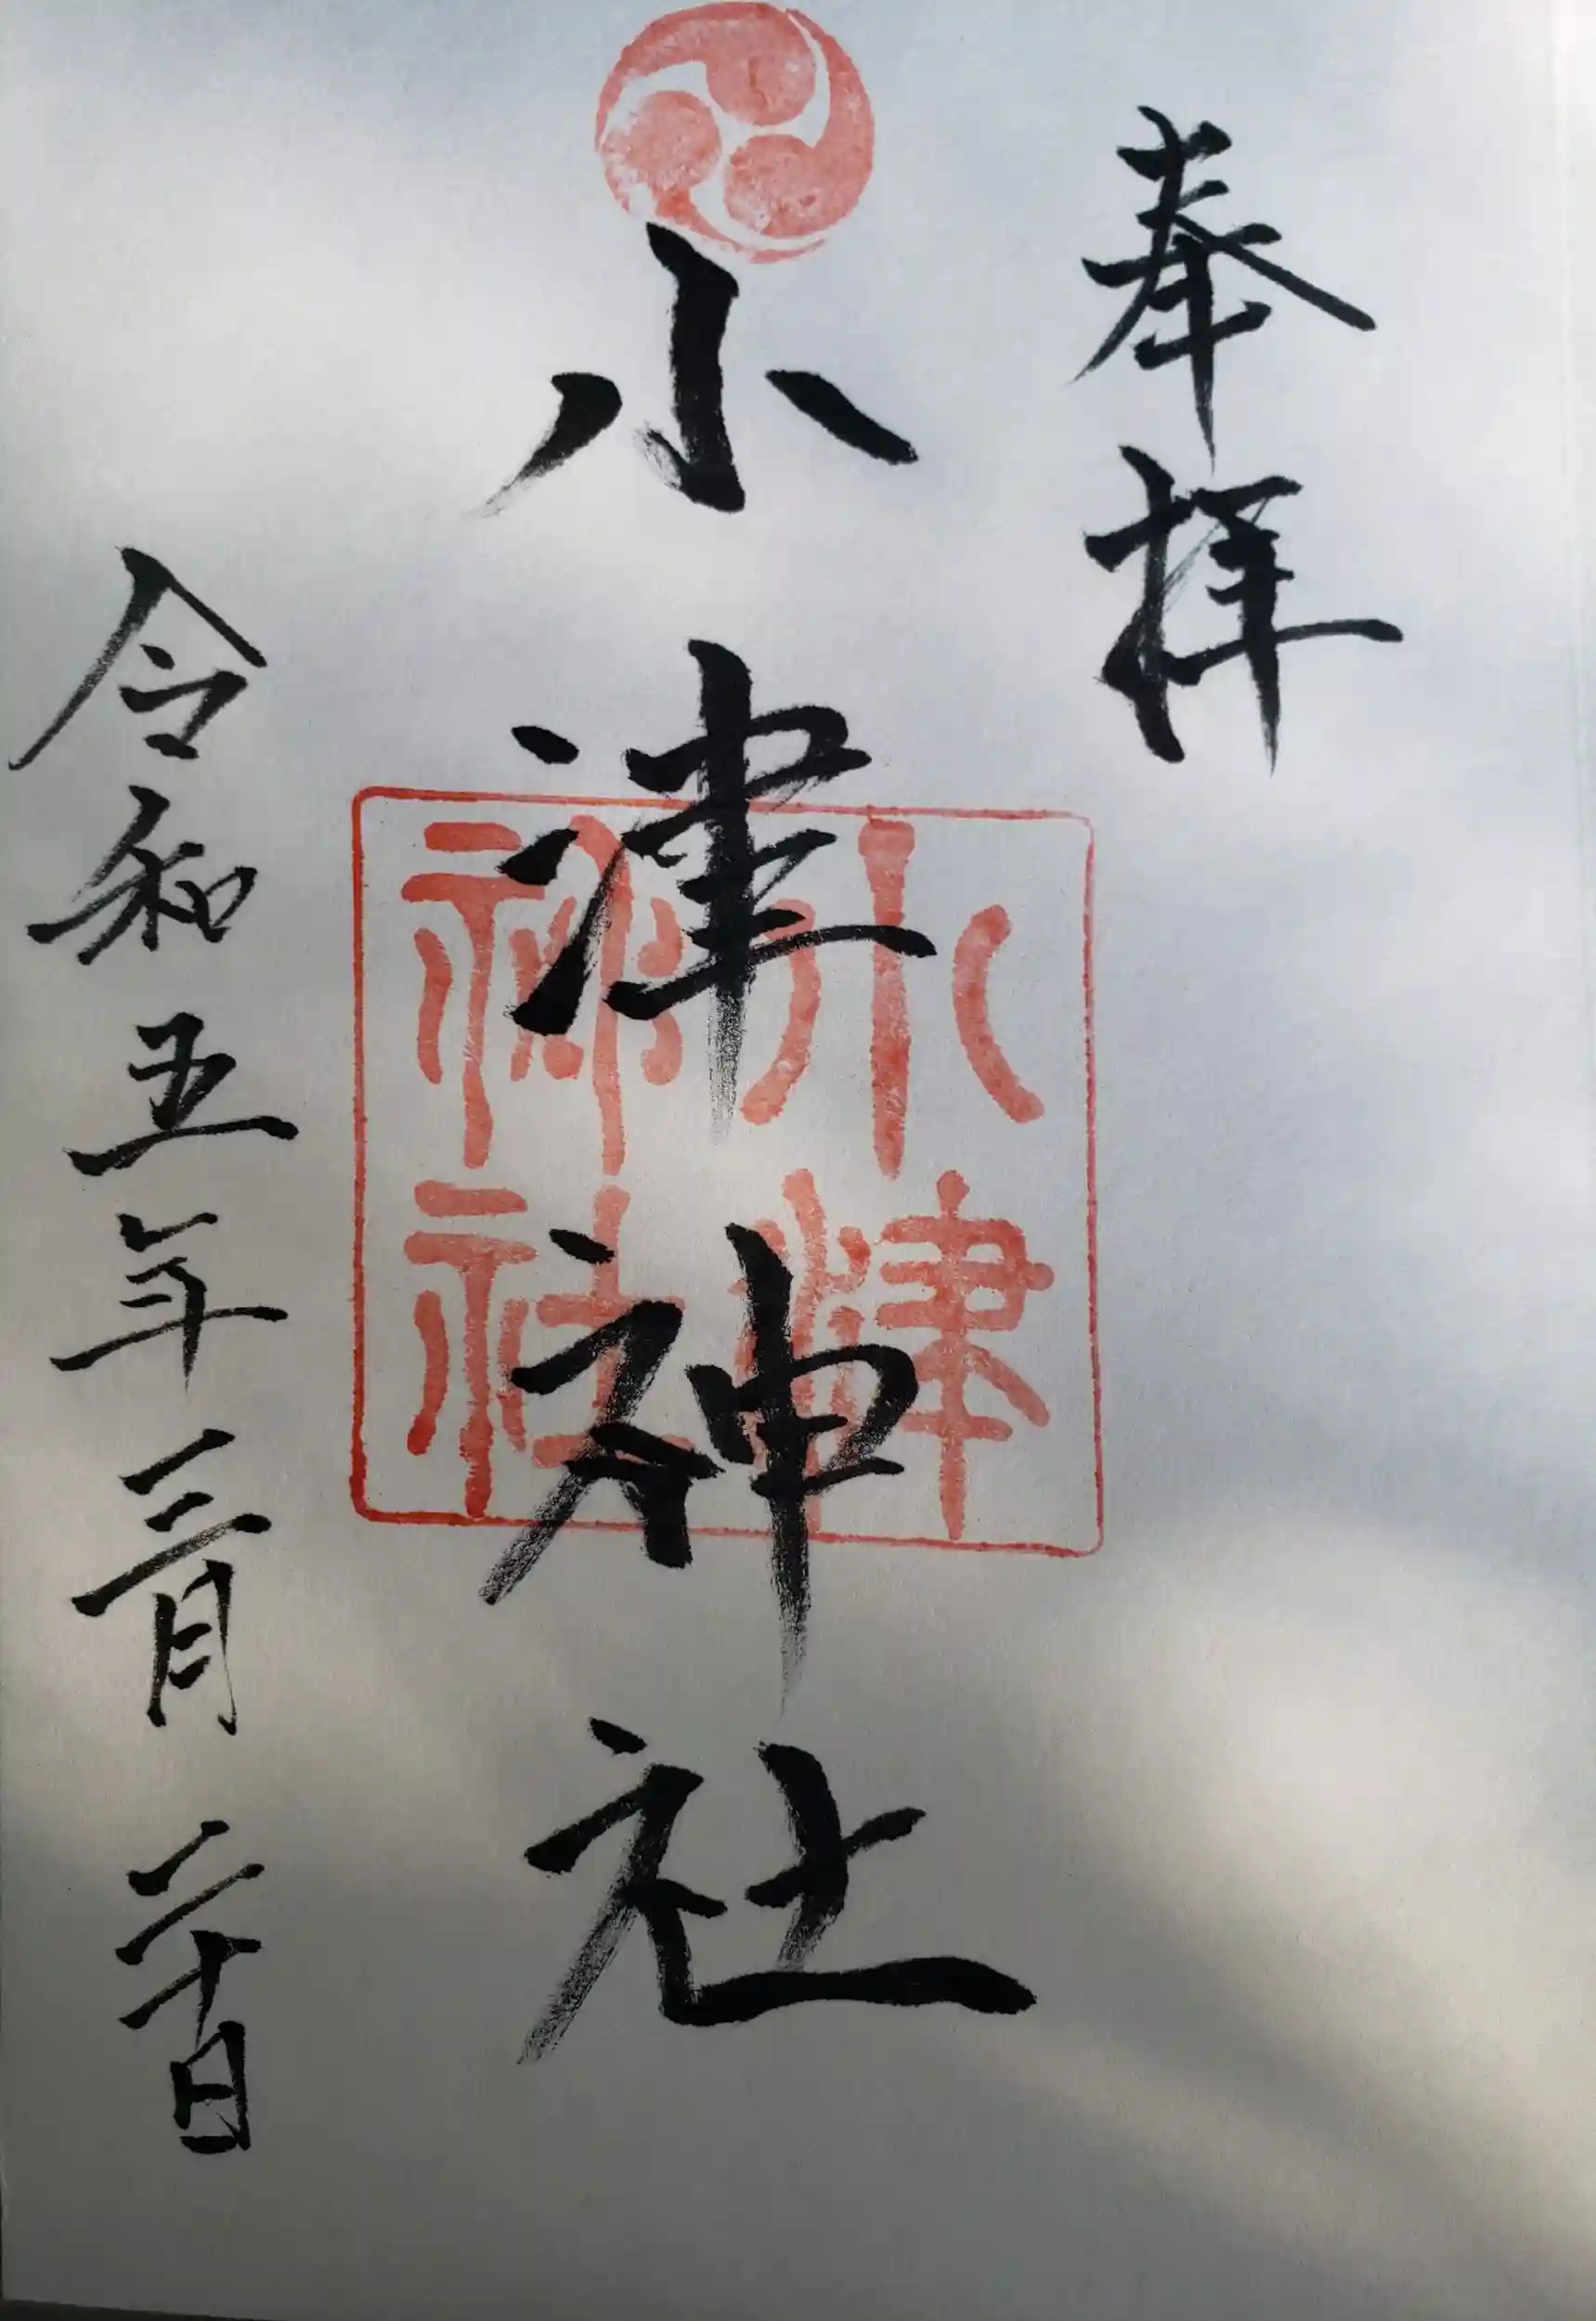 奉拝
小津神社
小津神社
令和五年三月二十日